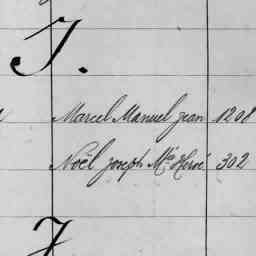 I.
Marcel Manuel Jean 1208
Noël Joseph Mie Hervé 302
J